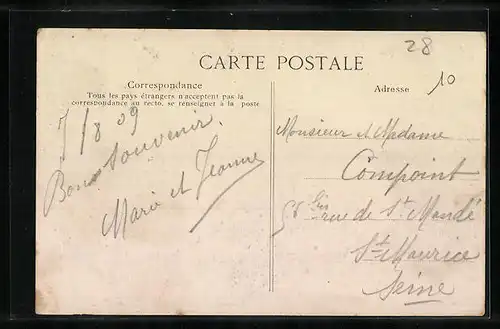 28
CARTE POSTALE
10
Correspondance
Tous les pays étrangers n'acceptent pas la
correspondance au recto, se renseigner à la poste
Adresse
7/8 09
Bons Souvenir.
Marie et Jeanne
Monsieur et Madame
Compoint
58 bis
rue de St Mandé
St Maurice
Seine